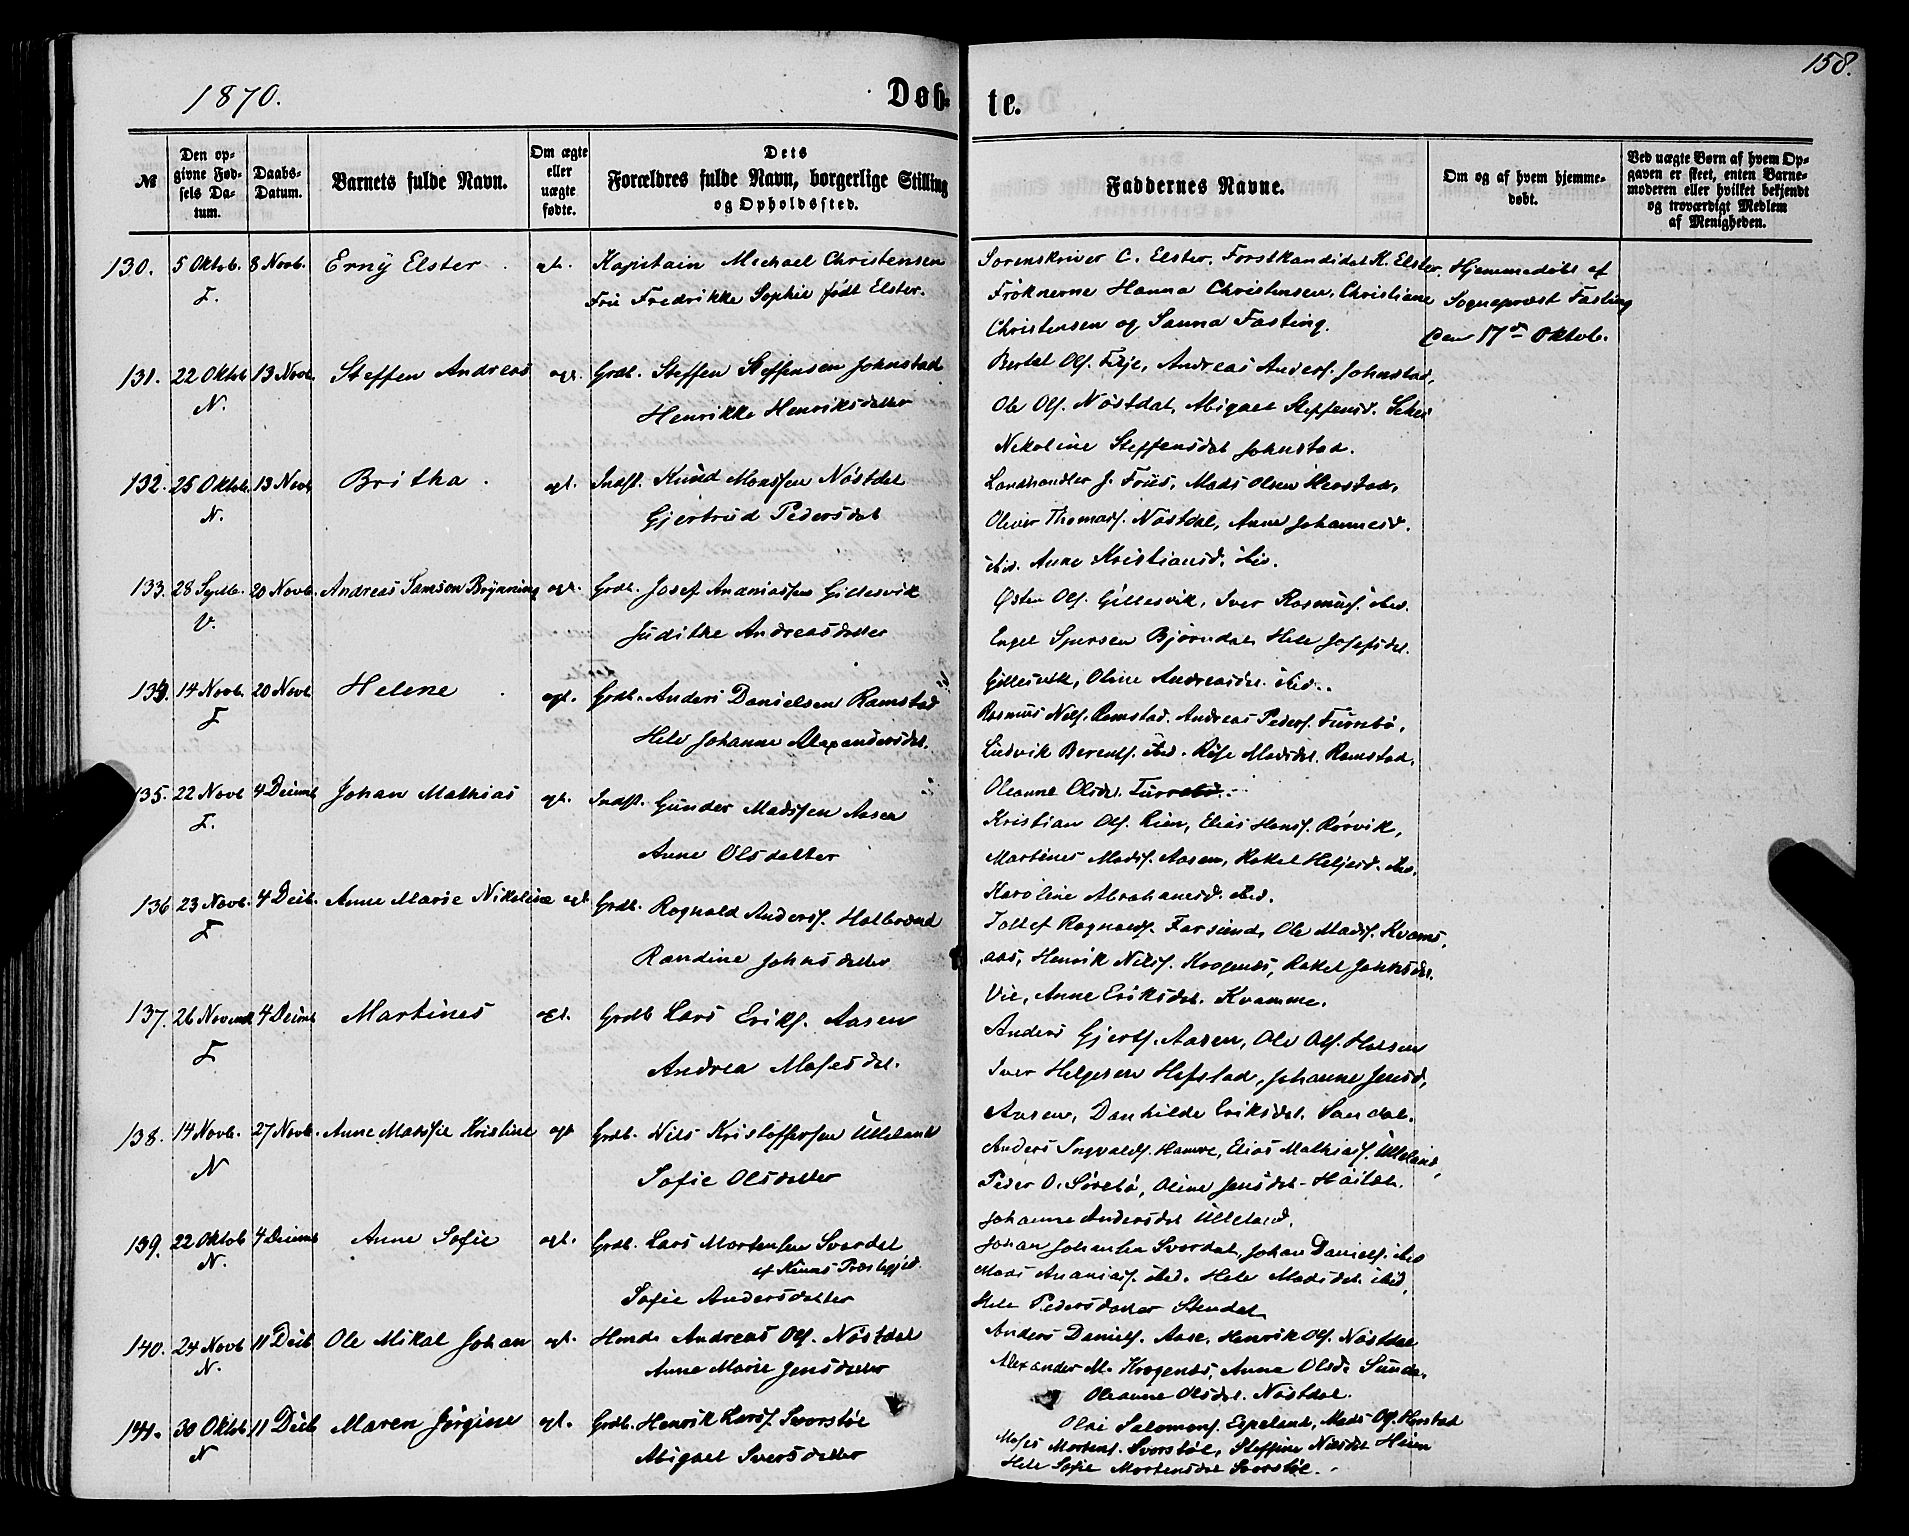 158.
1870.
Døb- te.
№
Den opgivne Fødsels Datum.
Daabs-Datum.
Barnets fulde Navn.
Om ægte eller uægte fødte.
Dets Forældres fulde Navn, borgerlige Stilling og Opholdssted.
Faddernes Navne.
Om og af hvem hjemmedøbt.
Ved uægte Børn af hvem Opgaven er skeet, enten Barnemoderen eller hvilket bekjendt og troværdigt Medlem af Menigheden.
130. 5 Oktob. 8 Novb. Erny Elster. Kapitain Michael Christensen
F. Fru Fredrikke Sophie født Elster.
Sorenskriver C. Elster, Forstkandidat K. Elster, Hjemmedøbt af
Frøknerne Hanna Christensen, Christiane Sognepræst Fasting
Christensen og Sanna Fasting. den 17de Oktob.
131. 22 Oktob 13 Novb. Steffen Andreas ægt. Grdb. Steffen Steffensen Johnstad
N. Henrikke Henriksdatter
Bertel Ols. Andreas Anders. Johnstad,
Ole Ols. Nøstdal, Abigael Steffensd.
Nikoline Steffensdat Johnstad.
132. 25 Oktob. 13 Novb Britha. ægt. Indst. Knud Monssen Nøstdal
N. Gjertrud Pedersdat
Landhandler J. Friis, Mads Olsen
Oliver Thomass. Nøstdal, Anne Johannesd.
ibid. Anne Kristiansd. ibid.
133. 28 Septb. 20 Novb. Andreas Samson Brynning ægt. Grdb. Josef Ananiassen Gillesvik
V. Judithe Andreasdatter
Østen Ols. Gillesvik, Iver Rasmus. ibid.
Engel Bjørndal, Hele Josefsdat.
Gillesvik, Oline Andreasdat. ibid.
134. 14 Novb. 20 Novb Helene ægt. Grdb. Anders Danielsen Ramstad
F. Hele Johanne Alexandersdat.
Rasmus Nils. Ramstad. Andreas Peders. Furnbø,
Ludvik Berents. ibid. Madsdat. Ramstad,
Oleanne Olsdat.
135. 22 Novb 4 Decemb Johan Mathias ægt. Indst. Gunder Madssen Aasen
F. Anne Olsdatter
Kristian Ols. Elias Hans. Rørvik,
Martines Mads. Aasen, Rakel ibid.
Karoline Abrahamsd. ibid.
136. 23 Novb. 4 Decb. Anne Marie Nikoline ægt Grdb. Rognald Anders. Halbrend
F. Randine Johnsdatter
Rognalds. Farsund, Ole Mads. Kvams-
aas, Henrik Nils. Krogenæs, Rakel Johnsdat.
Vie, Anne Eriksdat. Kvamme.
137. 26 Novemb 4 Decemb Martines ægt. Grdb Lars Eriks. Aasen
F. Andrea Mosesdat.
Anders Gjerts. Aasen, Ole Ols.
Iver Helgesen Hafstad, Johanne Jensd,
Aasen, Danhilde Eriksdat. Sandal.
138. 14 Novb. 27 Novb. Anne Mathie Kristine ægt Grdb. Nils Kristoffersen Utteland
N Sofie Olsdatter
Anders Ingvalds. Hamre, Elias Mathias. Utteland,
Peder O. Sørebø, Oline Jensdat
Johanne Andersdat Utteland.
139. 22 Oktob 4 Decemb Anne Sofie ægt. Grdb. Lars Mortensen Svardal
N. af Kinns Præstegjld.
Sofie Andersdatter
Johan Johansen Svardal, Johan Daniels. ibid
Mads Ananias. ibid. Hele Madsdat. ibid,
Hele Pedersdatter Stendal
140. 24 Novb 11 Decb Ole Mikal Johan ægt. Hmd. Andreas Ols. Nøstdal
N. Anne Marie Jensdatter
Anders Daniels. Aase, Henrik Ols. Nøstdal
Alexander M. Krogenæs, Anne Olsd.
Oleanne Olsdat. Nøstdal.
141. 30 Oktob 11 Decb Maren Jørgine ægt. Grdb. Henrik Lars. Svorstøl
N Abigael Iversdatter
Salomons. Espeland, Mads Ols.
Moses Mortens. Svorstøl, Steffine Nilsdat
Hele Sofie Mortensdat Svorstøl.